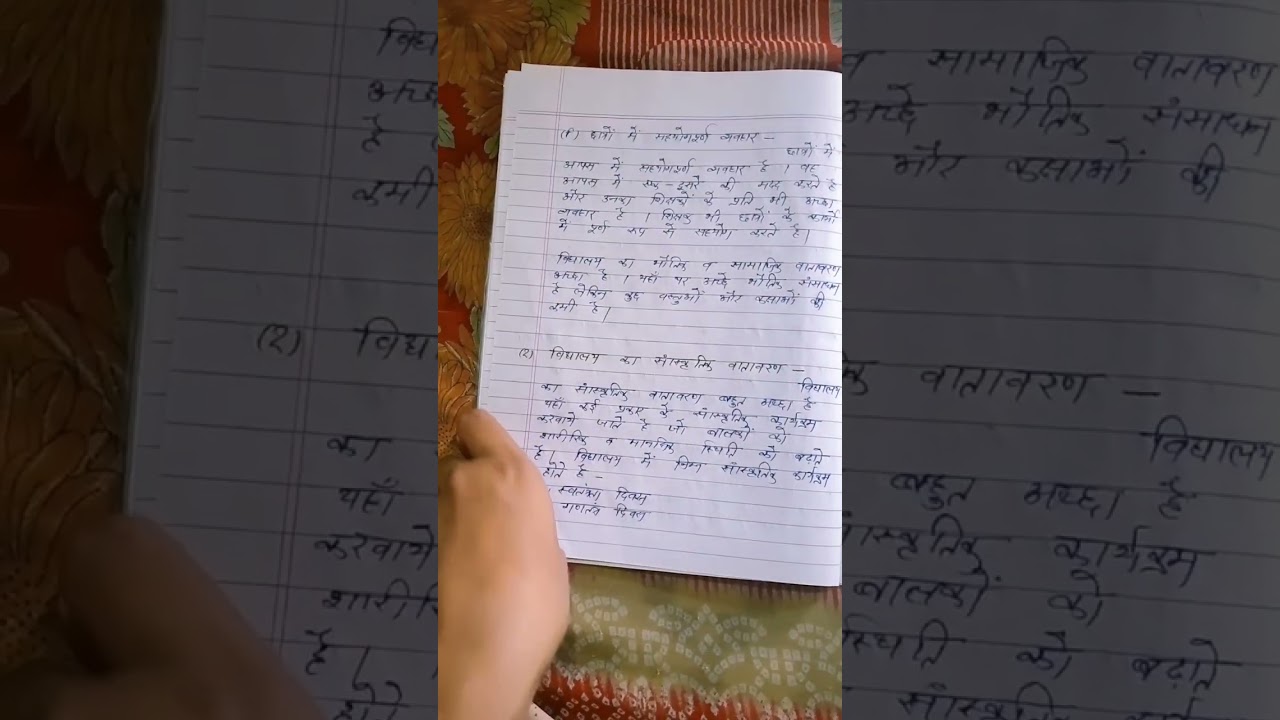 (१) छात्रों में सहयोगपूर्ण व्यवहार –
छात्रों में
आपस में सहयोगपूर्ण व्यवहार है । वह
आपस में एक-दूसरे की मदद करते है
और उनका शिक्षकों के प्रति भी अच्छा
व्यवहार है । शिक्षक भी छात्रों के कार्यो
में पूर्ण रूप से सहयोग करते है।
विद्यालय का भौतिक व सामाजिक वातावरण
अच्छा है । यहाँ पर अच्छे भौतिक संसाधन
है लेकिन कुछ वस्तुओं और कक्षाओं की
कमी है।
(2) विद्यालय का सांस्कृतिक वातावरण –
विद्यालय
का सांस्कृतिक वातावरण बहुत अच्छा है
यहाँ कई प्रकार के सांस्कृतिक कार्यक्रम
करवाने जाते है जो बालकों को
शारीरिक व मानसिक स्थिति को बढ़ाते
है। विद्यालय में निम्न सांस्कृतिक कार्यक्रम
होते है –
स्वतंत्रता दिवस
गणतंत्र दिवस